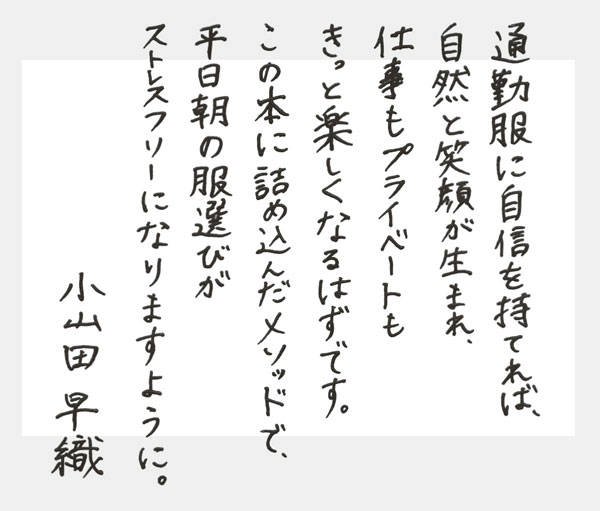 通勤服に自信を持てれば、
自然と笑顔が生まれ、
仕事もプライベートも
きっと楽しくなるはずです。
この本に詰め込んだメソッドで、
平日朝の服選びが
ストレスフリーになりますように。
小山田早織